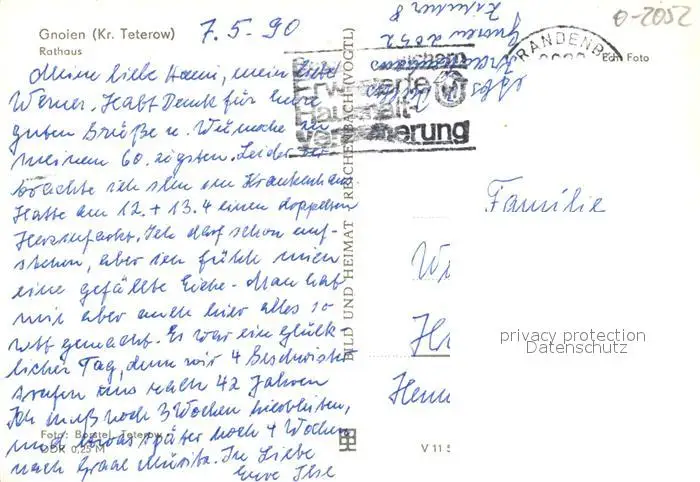 Gnoien (Kr. Teterow)
Rathaus
7.5-90
Meine liebe Hanni, mein lieber
Werner. Habt Dank für Eure
guten Grüße u. Wünsche zu
meinem 60.zigsten. Leider ver
brachte ich ihn im Krankenhaus
Hatte am 12.+13.4 einen doppelten
Herzinfarkt. Ich darf schon auf-
stehen, aber ich fühle mich
eine gefällte Eiche. Man hat
mir aber auch hier alles so
nett gemacht. Es war ein glück-
licher Tag, denn wir 4 Geschwister
trafen uns nach 42 Jahren
Ich muß noch 3 Wochen hierbleiben,
und etwas später noch 4 Wochen
nach Graal Müritz. In Liebe
Eure Ilse
Foto: Borstel, Teterow
DDR 0,25 M
BILD UND HEIMAT REICHENBACH (VOGTL)
V 11 5
Erweiterte
Haushalt-
versicherung
BRANDENBU
Gnoien 2052
O-2052
Echt Foto
Familie
privacy protection
Datenschutz